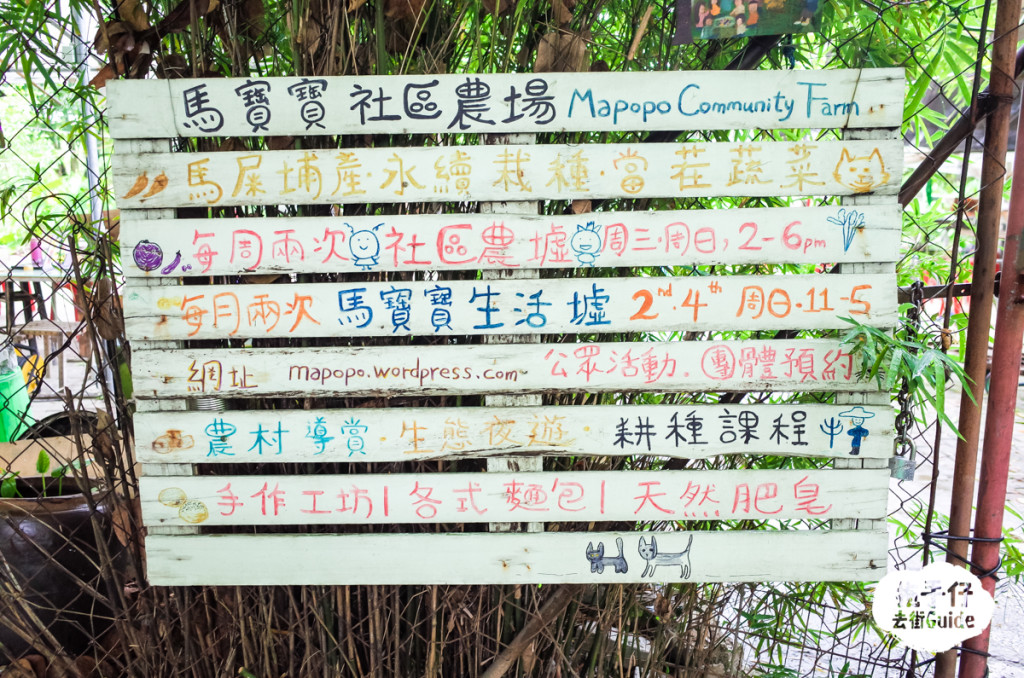 馬寶寶社區農場 Mapopo Community Farm
馬屎埔產·永續栽種·當茬蔬菜
每周兩次社區農墟周三·周日,2-6pm
每月兩次馬寶寶生活墟 2nd·4th 周日·11-5
網址 mapopo.wordpress.com 公眾活動.團體預約
農村導賞·生態夜遊·耕種課程
手作工坊|各式麵包|天然肥皂
去街Guide